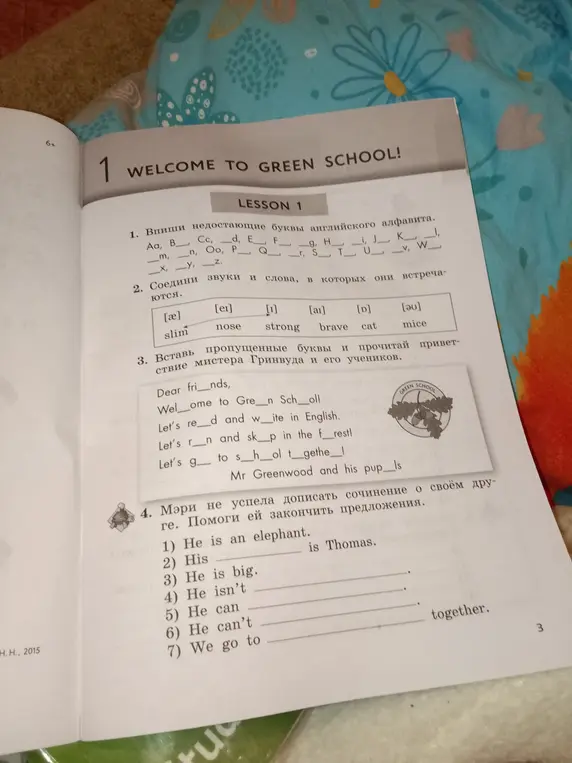 1 WELCOME TO GREEN SCHOOL!
LESSON 1
1. Впиши недостающие буквы английского алфавита.
Aa, B__, Cc, __d, E__, F__, __g, H__, __i, J__, K__, __l,
__m, __n, Oo, P__, Q__, __r, S__, T__, U__, __v, W__,
__x, __y, __z.
2. Соедини звуки и слова, в которых они встреча-
ются.
[æ] [eɪ] [ɪ] [aɪ] [ɒ] [əʊ]
slim nose strong brave cat mice
3. Вставь пропущенные буквы и прочитай привет-
ствие мистера Гринвуда и его учеников.
Dear fri__nds,
Wel__ome to Gre__n Sch__ol!
Let's re__d and w__ite in English.
Let's r__n and sk__p in the f__rest!
Let's g__ to s__h__ol t__gethe__!
Mr Greenwood and his pup__ls
GREEN SCHOOL
4. Мэри не успела дописать сочинение о своём дру-
ге. Помоги ей закончить предложения.
1) He is an elephant.
2) His __________ is Thomas.
3) He is big.
4) He isn't __________.
5) He can __________.
6) He can't __________.
7) We go to __________ together.
3
Н.Н., 2015